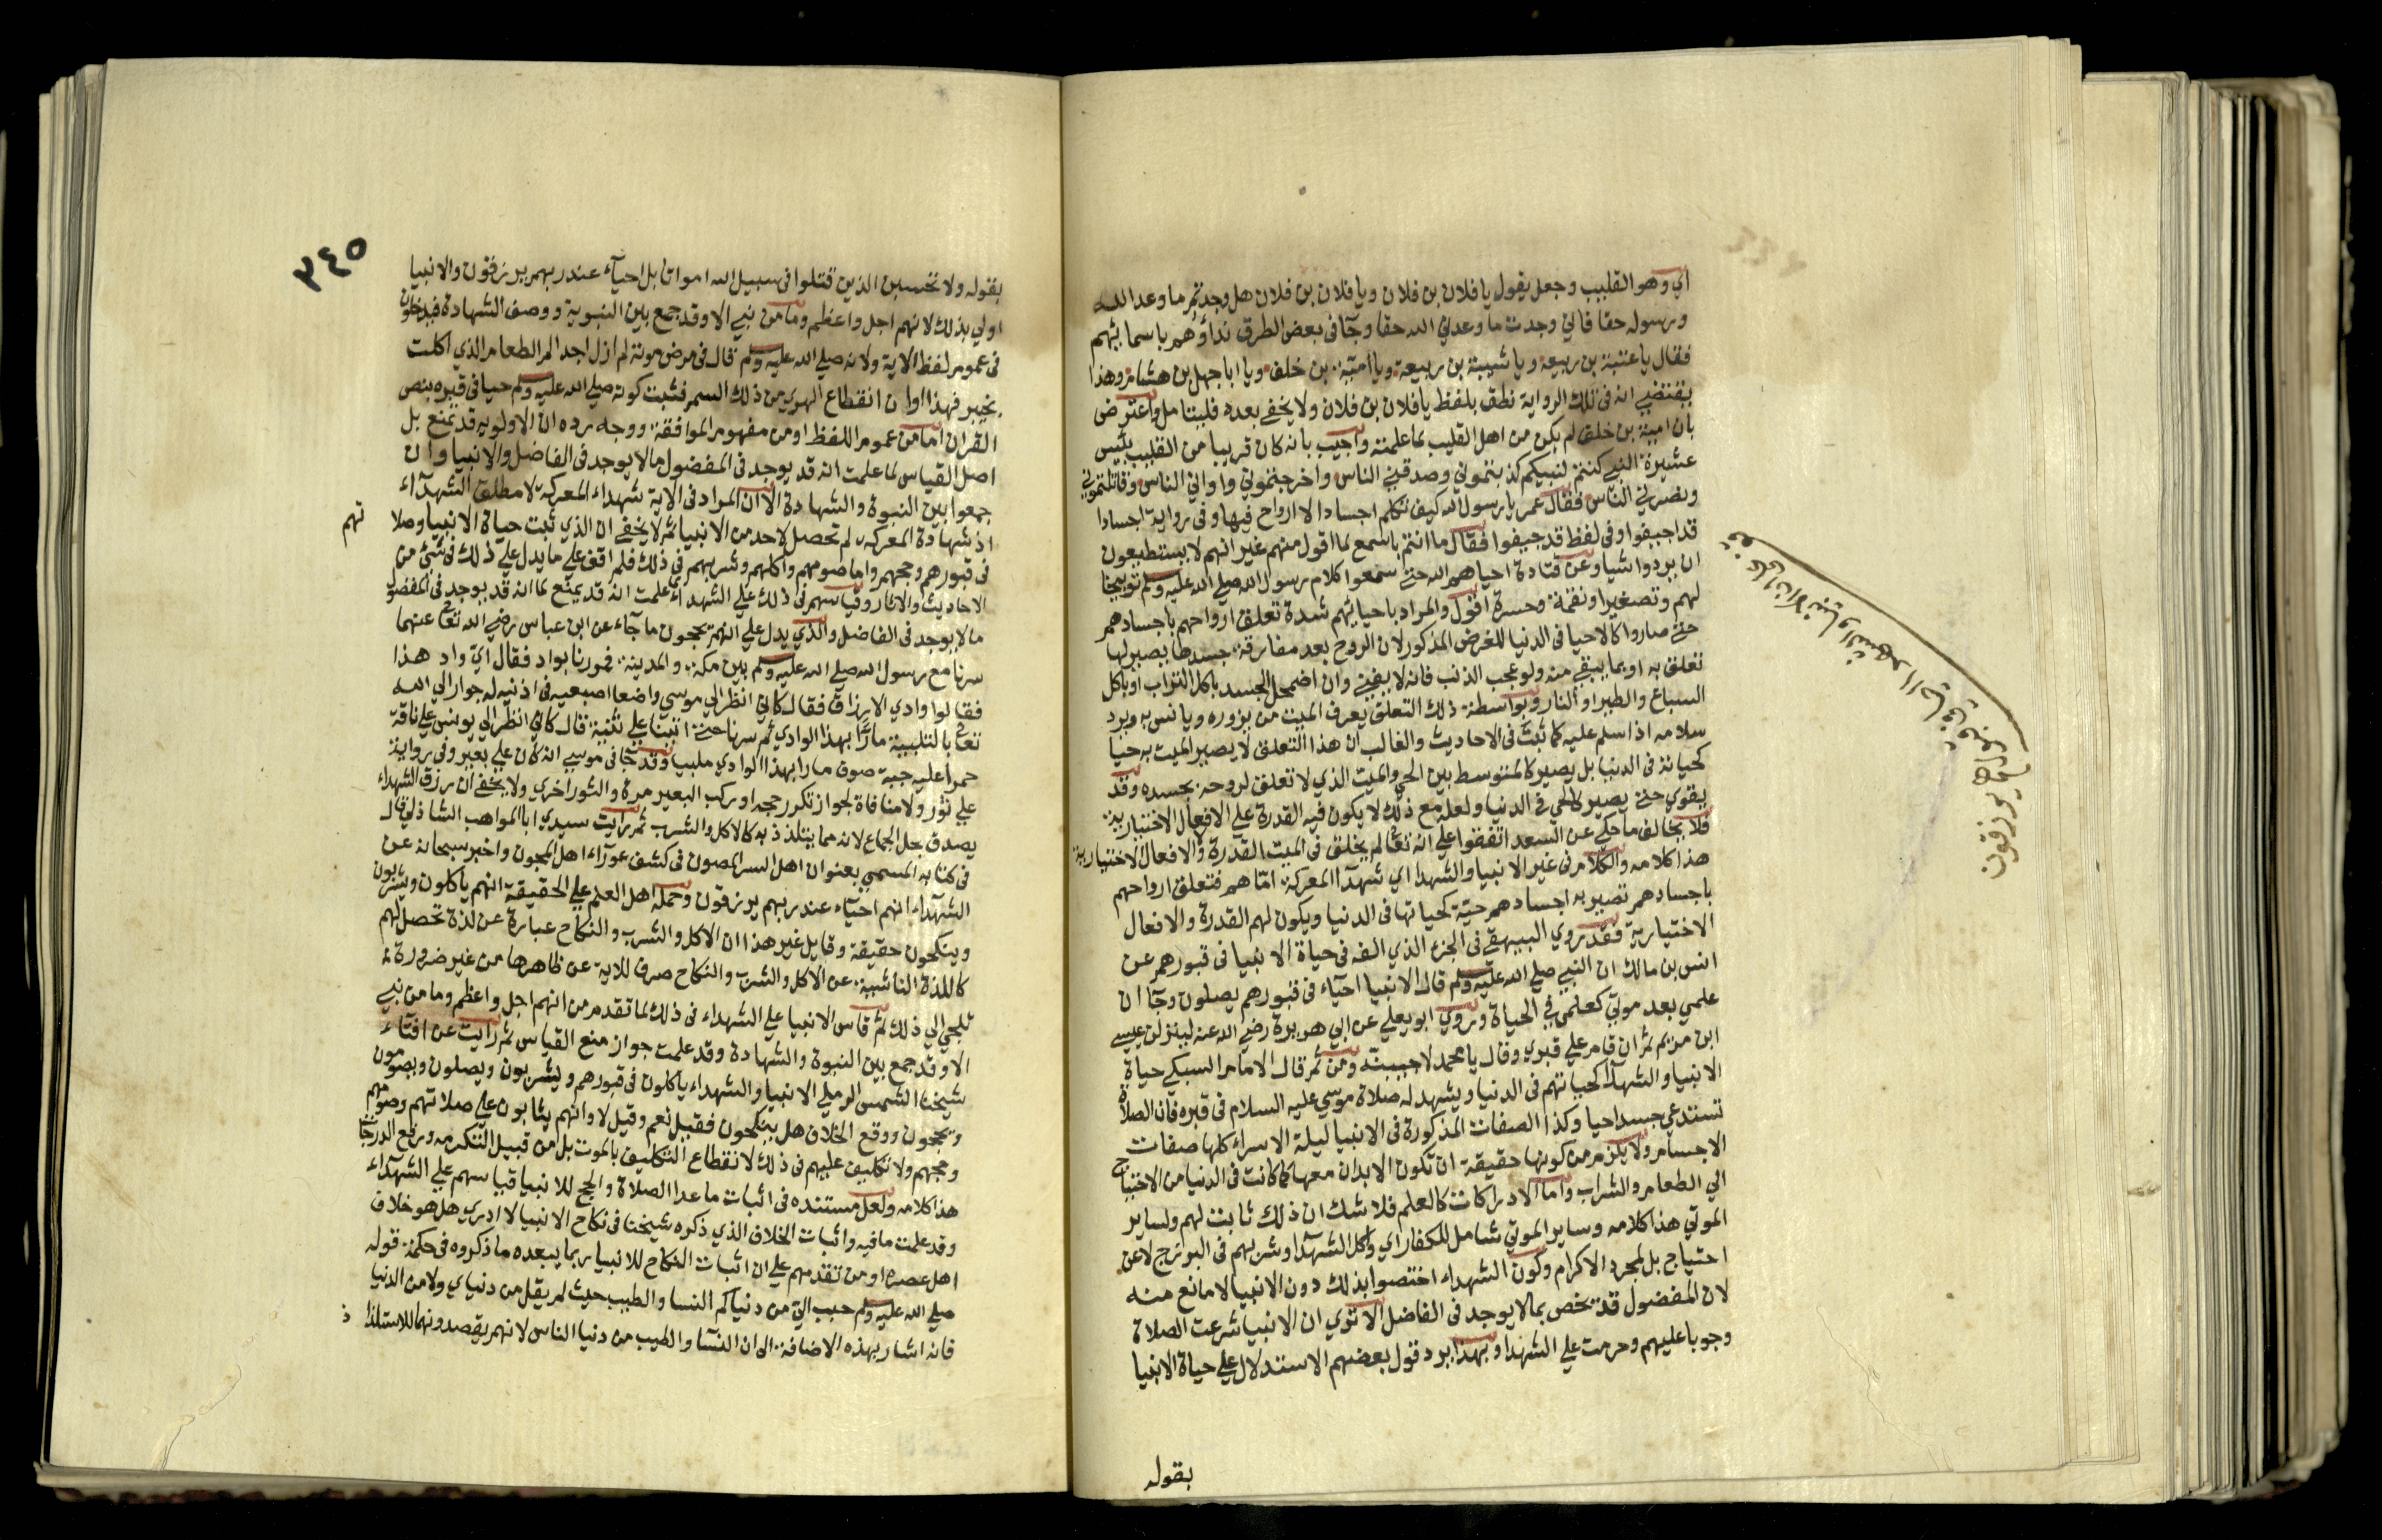 اي وهو القليب وجعل يقول يا فلان بن فلان ويا فلان بن فلان هل وجدتم ما وعد الله
ورسوله حقا فاني وجدت ما وعدني الله حقا وجآ في بعض الطرق نداؤهم باسمائهم
فقال يا عتبة بن ربيعة ويا شيبة بن ربيعة ويا امية بن خلف ويا ابا جهل بن هشام وهذا
يقتضي انه في تلك الرواية نطق بلفظ يا فلان بن فلان ولا يخفي بعده فليتامل واعترض
بان امية بن خلف لم يكن من اهل القليب لما علمته واجيب بانه كان قريبا من القليب بئيس
عشيرة النبي كنتم لنبيكم كذبتموني وصدقني الناس واخرجتموني واواني الناس وقاتلتموني
ونصرني الناس فقال عمر يا رسول الله كيف تكلم اجسادا لا ارواح فيها وفي رواية اجسادا
قد اجيفوا وفي لفظ قد جيفوا فقال ما انتم باسمع لما اقول منهم غير انهم لا يستطيعون
ان يردوا شيا وعن قتادة احياهم الله حتي سمعوا كلام رسول الله صلي الله عليه وسلم توبيخا
لهم وتصغيرا ونقمة وحسرة اقول والمراد باحيائهم شدة تعلق ارواحهم باجسادهم
حتي صاروا كالاحيا في الدنيا للغرض المذكور لان الروح بعد مفارقة جسدها يصير لها
تعلق به او بما يبقي منه ولو عجب الذنب فانه لا يفني وان اضمحل الجسد باكل التراب او باكل
السباع والطير او النار وبواسطة ذلك التعلق يعرف الميت من يزوره ويانس به ويرد
سلامه اذا سلم عليه كما ثبت في الاحاديث والغالب ان هذا التعلق لا يصير الميت به حيا
كحياته في الدنيا بل يصير كالمتوسط بين الحي والميت الذي لا تعلق لروحه بجسده وقد
يقوي حتي يصير كالحي في الدنيا ولعله مع ذلك لا يكون فيه القدرة علي الافعال الاختيارية
فلا يخالف ما حكي عن السعد اتفقوا علي انه تعالي لم يخلق في الميت القدرة والافعال الاختيارية
هذا كلامه والكلام في غير الانبيا والشهدا اي شهدآ المعركة اما هم فتعلق ارواحهم
باجسادهم تصير به اجسادهم حية كحياتها في الدنيا ويكون لهم القدرة والافعال
الاختيارية فقد روي البيهقي في الجزء الذي الفه في حياة الانبيا في قبورهم عن
انس بن مالك ان النبي صلي الله عليه وسلم قال الانبيا احيآء في قبورهم يصلون وجآ ان
علمي بعد موتي كعلمي في الحياة وروي ابو يعلي عن ابي هريرة رضي الله عنه لينزلن عيسي
ابن مريم ثم ان قام علي قبري وقال يا محمد لاجيبنه ومن ثم قال الامام السبكي حياة
الانبيا والشهدآ كحياتهم في الدنيا ويشهد له صلاة موسي عليه السلام في قبره فان الصلاة
تستدعي جسدا حيا وكذا الصفات المذكورة في الانبيا ليلة الاسراء كلها صفات
الاجسام ولا يلزم من كونها حقيقة ان تكون الابدان معها كما كانت في الدنيا من الاحتياج
الي الطعام والشراب واما الادراكات كالعلم فلا شك ان ذلك ثابت لهم ولساير
الموتي هذا كلامه وساير الموتي شامل للكفار اي واكل الشهدآ وشربهم في البرزخ لا عن
احتياج بل لمجرد الاكرام وكون الشهداء اختصوا بذلك دون الانبيا لا مانع منه
لان المفضول قد يخص بما لا يوجد في الفاضل الا تري ان الانبيا شرعت الصلاة
وجوبا عليهم وحرمت علي الشهدا وبهذا يرد قول بعضهم الاستدلال علي حياة الانبيا
بقوله
٣٤٥
بقوله ولا تحسبن الذين قتلوا في سبيل الله امواتا بل احيآء عند ربهم يرزقون والانبيا
اولي بذلك لانهم اجل واعظم وما من نبي الا وقد جمع بين النبوة ووصف الشهادة فيدخلون
في عموم لفظ الاية ولانه صلي الله عليه وسلم قال في مرض موته لم ازل اجد الم الطعام الذي اكلت
بخيبر فهذا اوان انقطاع ابهري من ذلك السم فثبت كونه صلي الله عليه وسلم حيا في قبره بنص
القران اما من عموم اللفظ او من مفهوم الموافقة ووجه رده ان الاولوية قد تمنع بل
اصل القياس لما علمت انه قد يوجد في المفضول ما لا يوجد في الفاضل والانبيا وان
جمعوا بين النبوة والشهادة الا ان المراد في الاية شهداء المعركة لا مطلق الشهدآء
اذ شهادة المعركه لم تحصل لاحد من الانبيا ثم لا يخفي ان الذي ثبت حياة الانبيا وصلا
تهم
في قبورهم وحجهم واما صومهم واكلهم وشربهم في ذلك فلم اقف علي ما يدل علي ذلك في شئ من
الاحاديث والاثار وقياسهم في ذلك علي الشهداء علمت انه قد يمنع لما انه قد يوجد في المفضول
ما لا يوجد في الفاضل والذي يدل علي انهم يحجون ما جآء عن ابن عباس رضي الله تعالي عنهما
سرنا مع رسول الله صلي الله عليه وسلم بين مكة والمدينة فمررنا بواد فقال اي واد هذا
فقالوا وادي الازرق فقال كاني انظر الي موسي واضعا اصبعيه في اذنيه له جوار الي الله
تعالي بالتلبية مارًا بهذا الوادي ثم سرنا حتي اتينا علي ثنية قال كاني انظر الي يونس علي ناقة
حمرا عليه جبة صوف مارا بهذا الوادي ملبيا وقد جآ في موسي انه كان علي بعير وفي رواية
علي ثور ولا منافاة لجواز تكرر حجه او ركب البعير مرة والثور اخري ولا يخفي ان رزق الشهداء
يصدق بحل الجماع لانه مما يتلذذ به كالاكل والشرب ثم رايت سيدي ابا المواهب الشاذلي قال
في كتابه المسمي بعنوان اهل السر المصون في كشف عورآء اهل المجون واخبر سبحانه عن
الشهدآء انهم احيآء عند ربهم يرزقون وحمله اهل العلم علي الحقيقة انهم ياكلون ويشربون
وينكحون حقيقة وقايل غير هذا ان الاكل والشرب والنكاح عبارة عن لذة تحصل لهم
كاللذة الناشية عن الاكل والشرب والنكاح صرف للاية عن ظاهرها من غير ضرورة
تلجي الي ذلك ثم قاس الانبيا علي الشهداء في ذلك لما تقدم من انهم اجل واعظم وما من نبي
الا وقد جمع بين النبوة والشهادة وقد علمت جواز منع القياس ثم رايت عن افتآء
شيخنا الشمس الرملي الانبيا والشهداء ياكلون في قبورهم ويشربون ويصلون ويصومون
ويحجون ووقع الخلاف هل ينكحون فقيل نعم وقيل لا وانهم يثابون علي صلاتهم وصومهم
وحجهم ولا تكليف عليهم في ذلك لانقطاع التكليف بالموت بل من قبيل التكرمه ورفع الدرجات
هذا كلامه ولعل مستنده في اثبات ما عدا الصلاة والحج للانبيا قياسهم علي الشهدآء
وقد علمت ما فيه واثبات الخلاف الذي ذكره شيخنا في نكاح الانبيا لا ادري هل هو خلاف
اهل عصره او من تقدمهم علي ان اثبات النكاح للانبيا ربما يبعده ما ذكروه في حكمة قوله
صلي الله عليه وسلم حبب الي من دنياكم النسا والطيب حيث لم يقل من دنياي ولا من الدنيا
فانه اشار بهذه الاضافة الي ان النسآ والطيب من دنيا الناس لانهم يقصدونهما للاستلذا
ذ